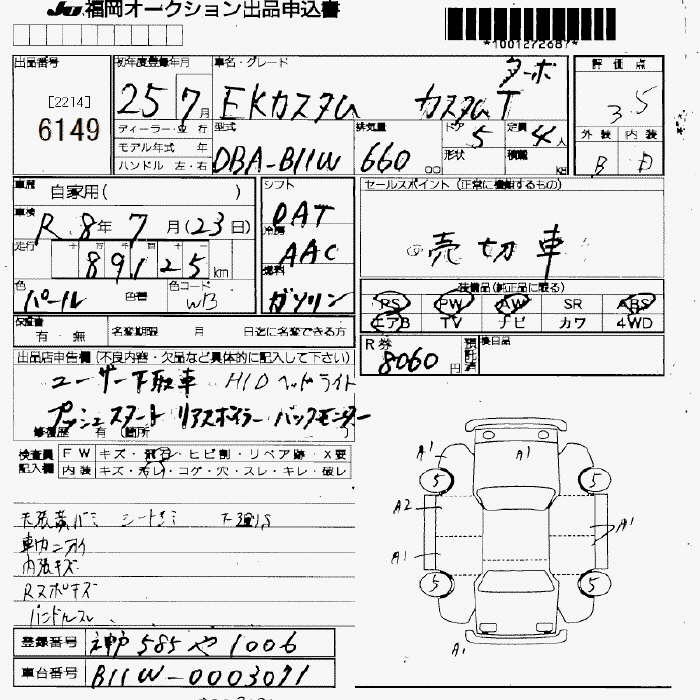 JU 福岡オークション出品申込書
*1001272687*
出品番号 初年度登録年月 車名・グレード 評価点
[2214]
6149
25 7月 EKカスタム カスタムT ターボ
3.5
ディーラー・並行 型式 排気量 ドア 5 定員 4人
外装 内装
モデル年式 年
ハンドル 左・右 DBA-B11W 660 cc 形状 積載 kg
B
車歴 自家用( )
シフト
セールスポイント (正常に機能するもの)
車検 R.8年 7月(23日)
DAT
売切車
走行 89125km
冷房 AAC
燃料 ガソリン
色 パール 色替 色コード WB
装備品(純正品に限る)
PS PW AW SR ABS
エアB TV ナビ カワ 4WD
保証書 有 無
名変期限 月 日迄に名変できる方
R券 8060円 預託済 後日品
出品店申告欄(不良内容・欠品など具体的に記入して下さい)
ユーザー下取車 HIDヘッドライト
プッシュスタート リアスポイラー バックモニター
修復歴 有 (箇所 )
検査員記入欄
FW キズ・飛石・ヒビ割・リペア跡・X要
内装 キズ・汚レ・コゲ・穴・スレ・キレ・破レ
車内ニオイ
内張キズ
Rスポキズ
ハンドルスレ
登録番号 神戸 585 や 1006
車台番号 B11W-0003071
A1 A1
5 5
A2
A1
A1
5 5
A1